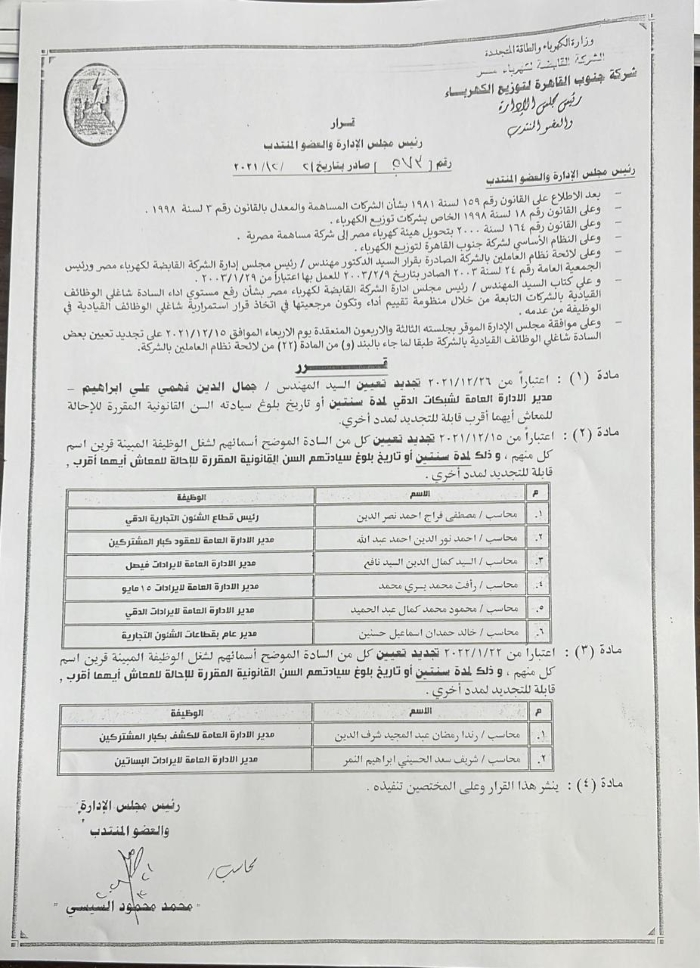 وزارة الكهرباء والطاقة المتجددة
الشركة القابضة لكهرباء مصر
شركة جنوب القاهرة لتوزيع الكهرباء
رئيس مجلس الإدارة
والعضو المنتدب
قرار
رئيس مجلس الإدارة والعضو المنتدب
رقم [ ٥٧٣ ] صادر بتاريخ ٢ / ١٢ / ٢٠٢١
رئيس مجلس الإدارة والعضو المنتدب
– بعد الاطلاع على القانون رقم ١٥٩ لسنة ١٩٨١ بشأن الشركات المساهمة والمعدل بالقانون رقم ٣ لسنة ١٩٩٨ .
– وعلى القانون رقم ١٨ لسنة ١٩٩٨ الخاص بشركات توزيع الكهرباء .
– وعلى القانون رقم ١٦٤ لسنة ٢٠٠٠ بتحويل هيئة كهرباء مصر إلى شركة مساهمة مصرية .
– وعلى النظام الأساسي لشركة جنوب القاهرة لتوزيع الكهرباء .
– وعلى لائحة نظام العاملين بالشركة الصادرة بقرار السيد الدكتور مهندس / رئيس مجلس إدارة الشركة القابضة لكهرباء مصر ورئيس
الجمعية العامة رقم ٢٤ لسنة ٢٠٠٣ الصادر بتاريخ ٢٠٠٣/٢/٩ للعمل بها اعتباراً من ٢٠٠٣/١/٢٩ .
– و علي كتاب السيد المهندس / رئيس مجلس ادارة الشركة القابضة لكهرباء مصر بشأن رفع مستوي اداء السادة شاغلي الوظائف
القيادية بالشركات التابعة من خلال منظومة تقييم أداء وتكون مرجعيتها في اتخاذ قرار استمرارية شاغلي الوظائف القيادية في
الوظيفة من عدمه .
– وعلى موافقة مجلس الإدارة الموقر بجلسته الثالثة والاربعون المنعقدة يوم الاربعاء الموافق ٢٠٢١/١٢/١٥ على تجديد تعيين بعض
السادة شاغلي الوظائف القيادية بالشركة طبقا لما جاء بالبند (و) من المادة (٢٢) من لائحة نظام العاملين بالشركة.
قـــــرر
مادة (١) : اعتباراً من ٢٠٢١/١٢/٢٦ تجديد تعيين السيد المهندس / جمال الدين فهمي علي ابراهيم –
مدير الادارة العامة لشبكات الدقي لمدة سنتين أو تاريخ بلوغ سيادته السن القانونية المقررة للإحالة
للمعاش أيهما أقرب قابلة للتجديد لمدد أخري.
مادة (٢) : اعتباراً من ٢٠٢١/١٢/١٥ تجديد تعيين كل من السادة الموضح أسمائهم لشغل الوظيفة المبينة قرين اسم
كل منهم ، و ذلك لمدة سنتين أو تاريخ بلوغ سيادتهم السن القانونية المقررة للإحالة للمعاش أيهما أقرب ,
قابلة للتجديد لمدد أخري .
م الاسم الوظيفة
.١ محاسب / مصطفى فراج احمد نصر الدين رئيس قطاع الشئون التجارية الدقي
.٢ محاسب / احمد نور الدين احمد عبد الله مدير الادارة العامة للعقود كبار المشتركين
.٣ محاسب / السيد كمال الدين السيد نافع مدير الادارة العامة لايرادات فيصل
.٤ محاسب / رأفت محمد يسري محمد مدير الادارة العامة لايرادات ١٥ مايو
.٥ محاسب / محمود محمد كمال عبد الحميد مدير الادارة العامة لايرادات الدقي
.٦ محاسب / خالد حمدان اسماعيل حسنين مدير عام بقطاعات الشئون التجارية
مادة (٣) : اعتبارا من ٢٠٢٢/١/٢٢ تجديد تعيين كل من السادة الموضح أسمائهم لشغل الوظيفة المبينة قرين اسم
كل منهم ، و ذلك لمدة سنتين أو تاريخ بلوغ سيادتهم السن القانونية المقررة للإحالة للمعاش أيهما أقرب ,
قابلة للتجديد لمدد أخري .
م الاسم الوظيفة
.١ محاسب / رندا رمضان عبد المجيد شرف الدين مدير الادارة العامة للكشف بكبار المشتركين
.٢ محاسب / شريف سعد الحسيني ابراهيم النمر مدير الادارة العامة لايرادات البساتين
مادة (٤) : ينشر هذا القرار وعلى المختصين تنفيذه .
رئيس مجلس الإدارة
والعضو المنتدب
محاسب /
" محمد محمود السيسي "